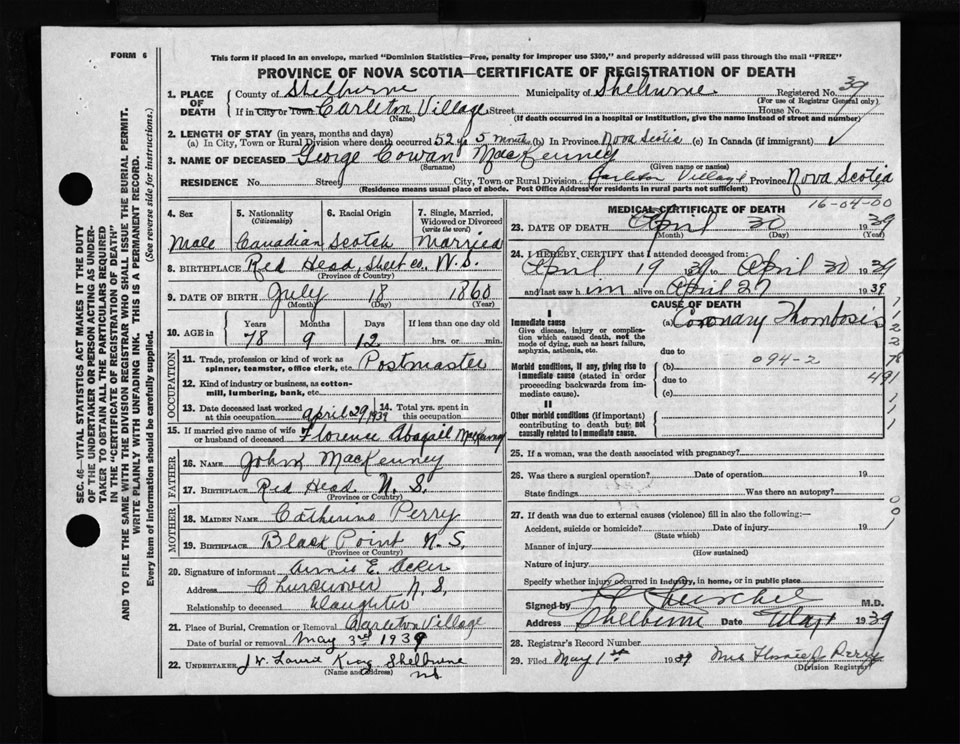 FORM 6
This form if placed in an envelope, marked "Dominion Statistics—Free, penalty for improper use $300," and properly addressed will pass through the mail "FREE"
PROVINCE OF NOVA SCOTIA—CERTIFICATE OF REGISTRATION OF DEATH
1. PLACE OF DEATH County of Shelburne Municipality of Shelburne Registered No. 39
(For use of Registrar General only)
If in City or Town Carleton Village Street House No.
(Name) (If death occurred in a hospital or institution, give the name instead of street and number)
2. LENGTH OF STAY (in years, months and days)
(a) In City, Town or Rural Division where death occurred 52 y 5 months (b) In Province Nova Scotia (c) In Canada (if immigrant)
3. NAME OF DECEASED George Cowan MacKenney
(Surname) (Given name or names)
RESIDENCE No. Street City, Town or Rural Division Carleton Village Province Nova Scotia
(Residence means usual place of abode. Post Office Address for residents in rural parts not sufficient)
16-04-00
4. Sex Male
5. Nationality (Citizenship) Canadian
6. Racial Origin Scotch
7. Single, Married, Widowed or Divorced (write the word) Married
8. BIRTHPLACE Red Head, Shel co. N.S.
(Province or Country)
9. DATE OF BIRTH July 18 1860
(Month) (Day) (Year)
10. AGE in Years Months Days If less than one day old
78 9 12 hrs. or min.
OCCUPATION
11. Trade, profession or kind of work as spinner, teamster, office clerk, etc. Postmaster
12. Kind of industry or business, as cotton-mill, lumbering, bank, etc.
13. Date deceased last worked at this occupation April 29, 1939
14. Total yrs. spent in this occupation
15. If married give name of wife or husband of deceased Florence Abagail MacKenney
FATHER
16. NAME John MacKenney
17. BIRTHPLACE Red Head N.S.
(Province or Country)
MOTHER
18. MAIDEN NAME Catherine Perry
19. BIRTHPLACE Black Point N.S.
(Province or Country)
20. Signature of informant E.
Address Churchover N.S.
Relationship to deceased daughter
21. Place of Burial, Cremation or Removal Carleton Village
Date of burial or removal May 3rd 1939
22. UNDERTAKER King Shelburne
(Name and address) NS
MEDICAL CERTIFICATE OF DEATH
23. DATE OF DEATH April 30 1939
(Month) (Day) (Year)
24. I HEREBY CERTIFY that I attended deceased from
April 19 1939 to April 30 1939
and last saw him alive on April 27 1939
CAUSE OF DEATH
I
Immediate cause (a) Coronary Thombosis
Give disease, injury or complication which caused death, not the mode of dying, such as heart failure, asphyxia, asthenia, etc.
due to
094-2
Morbid conditions, if any, giving rise to immediate cause (stated in order proceeding backwards from immediate cause). (b)
due to
(c)
II
Other morbid conditions (if important) contributing to death but not causally related to immediate cause.
25. If a woman, was the death associated with pregnancy?
26. Was there a surgical operation? Date of operation 19
State findings Was there an autopsy?
27. If death was due to external causes (violence) fill in also the following:—
Accident, suicide or homicide? Date of injury 19
(State which)
Manner of injury
(How sustained)
Nature of injury
Specify whether injury occurred in industry, in home, or in public place
Signed by M.D.
Address Shelburne Date 1939
28. Registrar's Record Number
29. Filed May 1st 1939 Mrs Perry
(Division Registrar)
SEC. 46—VITAL STATISTICS ACT MAKES IT THE DUTY
OF THE UNDERTAKER OR PERSON ACTING AS UNDER-
TAKER TO OBTAIN ALL THE PARTICULARS REQUIRED
IN THE "CERTIFICATE OF REGISTRATION OF DEATH"
AND TO FILE THE SAME WITH THE DIVISION REGISTRAR WHO SHALL ISSUE THE BURIAL PERMIT.
WRITE PLAINLY WITH UNFADING INK. THIS IS A PERMANENT RECORD.
Every item of information should be carefully supplied. (See reverse side for instructions.)